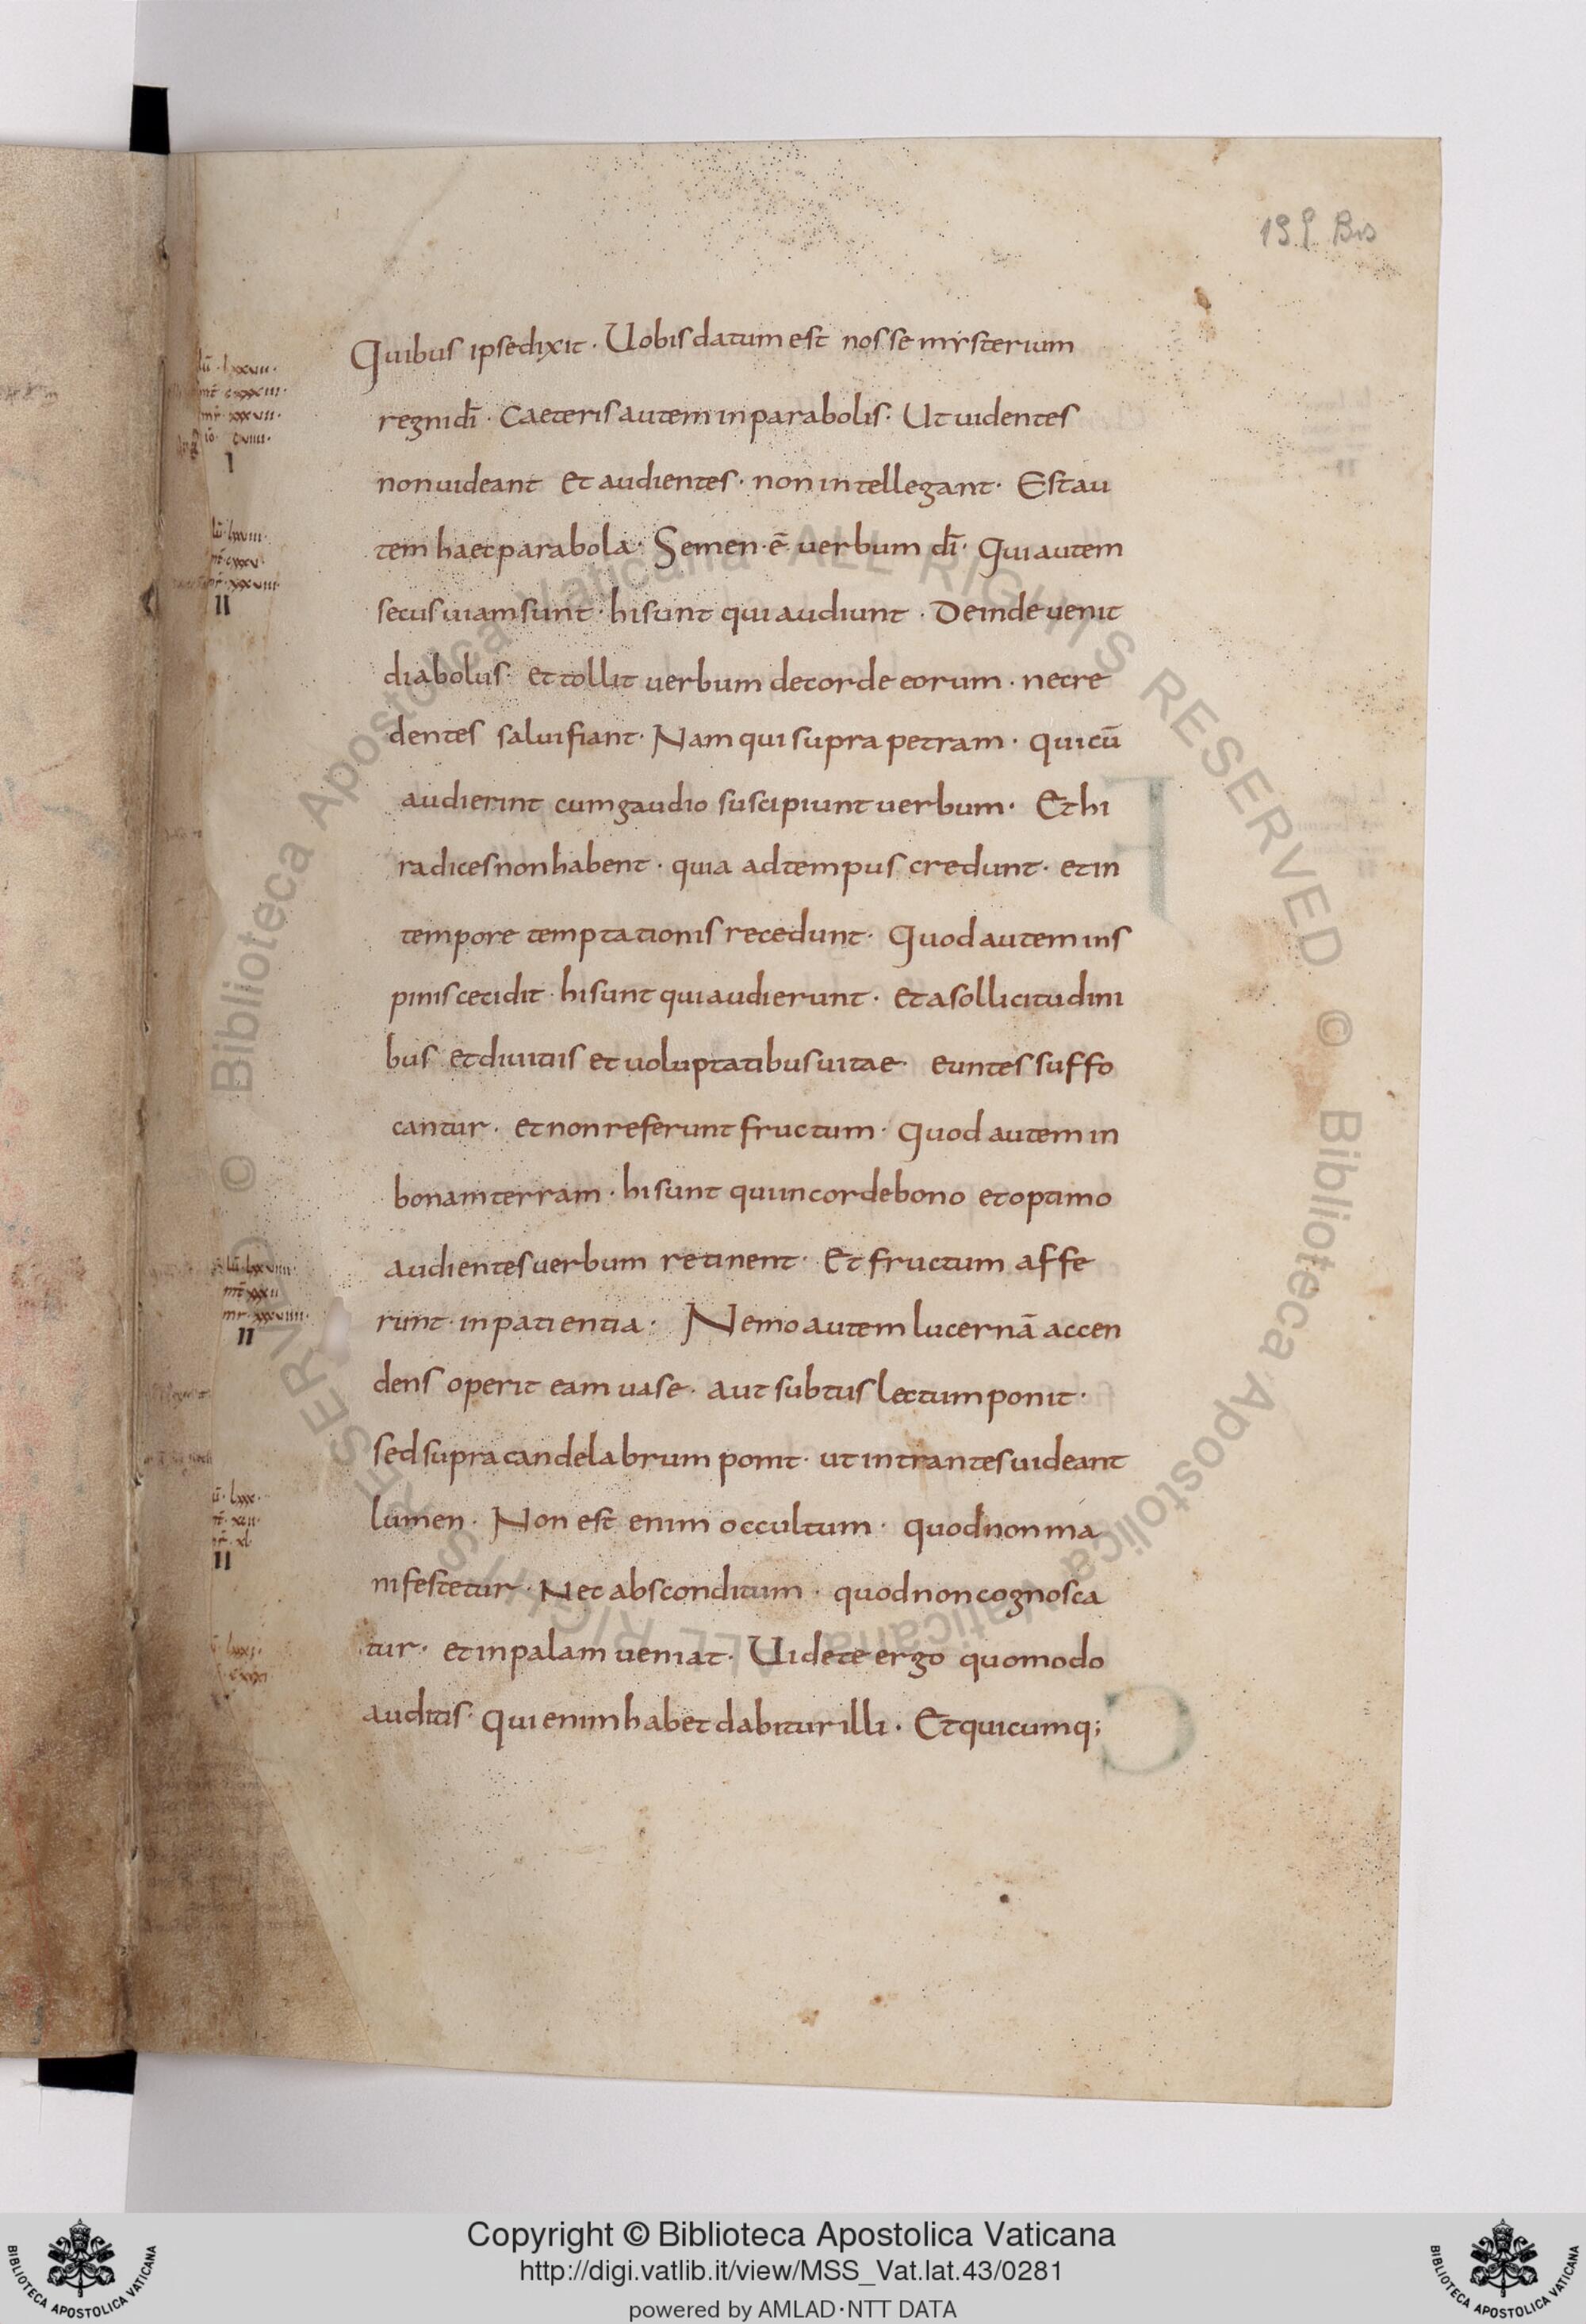 199 Bis
Quibus ipse dixit · Uobis datum est nosse mysterium
regni dī · Caeteris autem in parabolis · Ut uidentes
non uideant et audientes · non intellegant · Est au
tem haec parabola · Semen · ē uerbum dī · Qui autem
secus uiam sunt · hi sunt qui audiunt · Deinde uenit
diabolus · et tollit uerbum de corde eorum · ne cre
dentes salui fiant · Nam qui supra petram · qui cū
audierint cum gaudio suscipiunt uerbum · Et hi
radices non habent · quia ad tempus credunt · et in
tempore temptationis recedunt · Quod autem in s
pinis cecidit · hi sunt qui audierunt · et a sollicitudini
bus et diuitiis et uoluptatibus uitae · euntes suffo
cantur · et non referunt fructum · Quod autem in
bonam terram · hi sunt qui in corde bono et optimo
audientes uerbum retinent · Et fructum affe
runt · in patientia · Nemo autem lucernā accen
dens operit eam uase · aut subtus lectum ponit ·
sed supra candelabrum ponit · ut intrantes uideant
lumen · Non est enim occultum · quod non ma
nifestetur · Nec absconditum · quod non cognosca
tur · et in palam ueniat · Uidete ergo quomodo
auditis · Qui enim habet dabitur illi · Et quicumq;
I
II
II
II
Copyright © Biblioteca Apostolica Vaticana
http://digi.vatlib.it/view/MSS_Vat.lat.43/0281
powered by AMLAD·NTT DATA
BIBLIOTECA APOSTOLICA VATICANA
BIBLIOTECA APOSTOLICA VATICANA
© Biblioteca Apostolica Vaticana ALL RIGHTS RESERVED
© Biblioteca Apostolica Vaticana ALL RIGHTS RESERVED